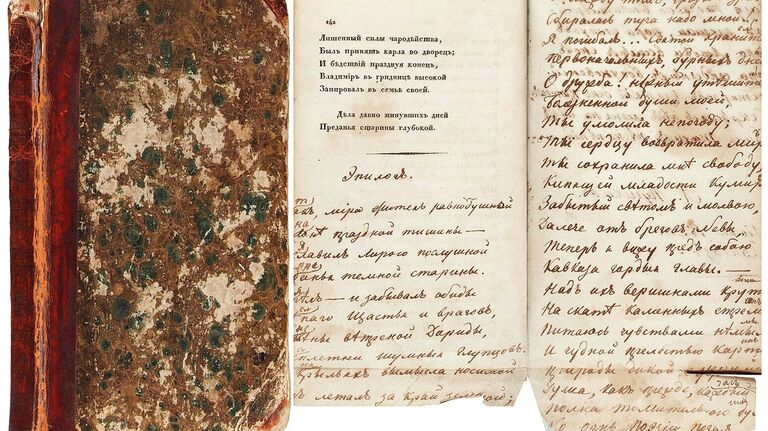 142
Лишенный силы чародѣйства,
Былъ принятъ карла во дворецъ;
И бѣдствій празднуя конецъ,
Владимiръ въ гридницѣ высокой
Запировалъ въ семьѣ своей.
Дѣла давно минувшихъ дней
Преданья старины глубокой.
Эпилогъ.
Такъ, міра житель равнодушной
На лонѣ праздной тишины —
Я славилъ лирою послушной
Преданья темной старины.
Я пѣлъ — и забывалъ обиды
Слѣпаго щастья и враговъ,
Измѣны вѣтреной Дориды,
И сплетни шумныя глупцовъ.
На крыльяхъ вымысла носимой
Умъ леталъ за край земной;
Сбиралась туча надо мной!
Я погибалъ... Святой хранитель
первоначальныхъ, бурныхъ дней
О дружба! нѣжный утѣшитель
болѣзненной души моей,
ты умолила непогоду;
ты сердцу возвратила миръ
ты сохранила мнѣ свободу,
Кипящей младости кумиръ
Забытый свѣтомъ и молвою,
Далече отъ бреговъ Невы
Теперь я вижу предъ собою
Кавказа гордыя главы. —
Надъ ихъ вершинами крутыми
На скатѣ каменныхъ стремнинъ
Питаюсь чувствами нѣмыми
И чудной прелестью картинъ
природы дикой
душа, какъ прежде, каждый часъ
полна томительною думой
Но огнь Поэзіи погасъ